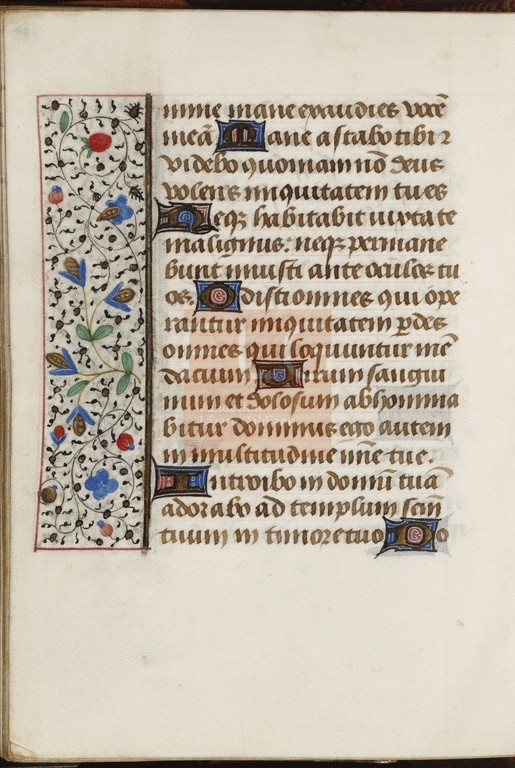 mine mane exaudies vocē
meā Mane astabo tibi ⁊
videbo quoniam nō deus
volens iniquitatem tu es
Neqꝫ habitabit iuxta te
malignus: neqꝫ permane
bunt iniusti ante oculos tu
os. Odisti omnes qui ope
rantur iniquitatem ꝑdes
omnes qui loquuntur mē
dacium Uirum sangui
num et dolosum abhomina
bitur dominus ego autem
in multitudine mīe tue.
Introibo in domū tuā
adorabo ad templum scm̄
tuum in timore tuo Do